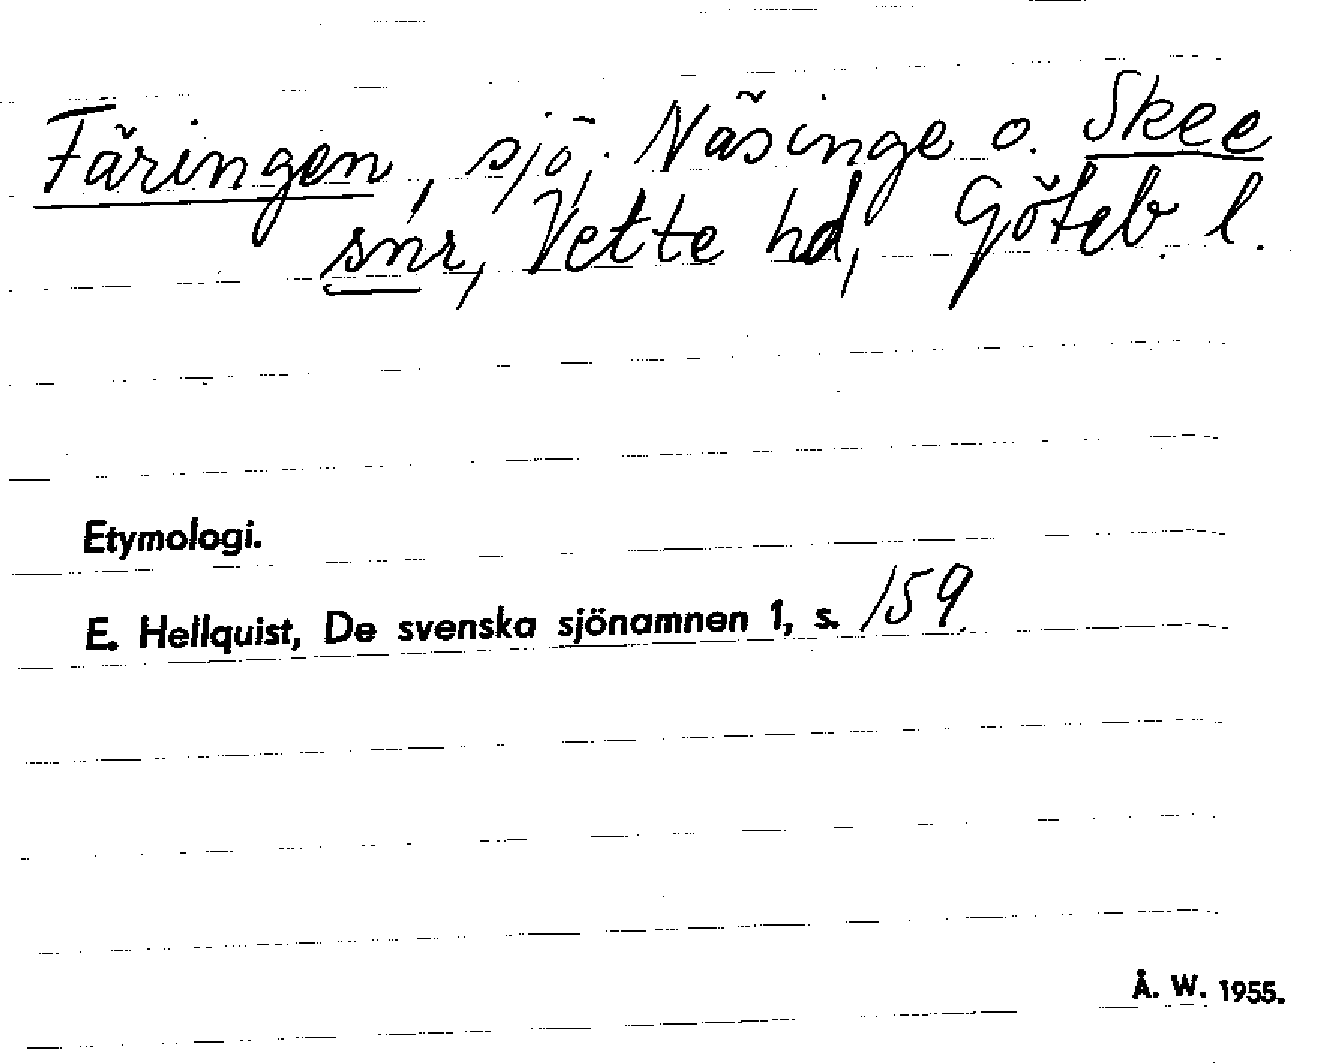 Färingen, sjö, Näsinge o. Skee
snr, Vette hd, Göteb. l.
Etymologi.
E. Hellquist, De svenska sjönamnen 1, s. 159
Å. W. 1955.